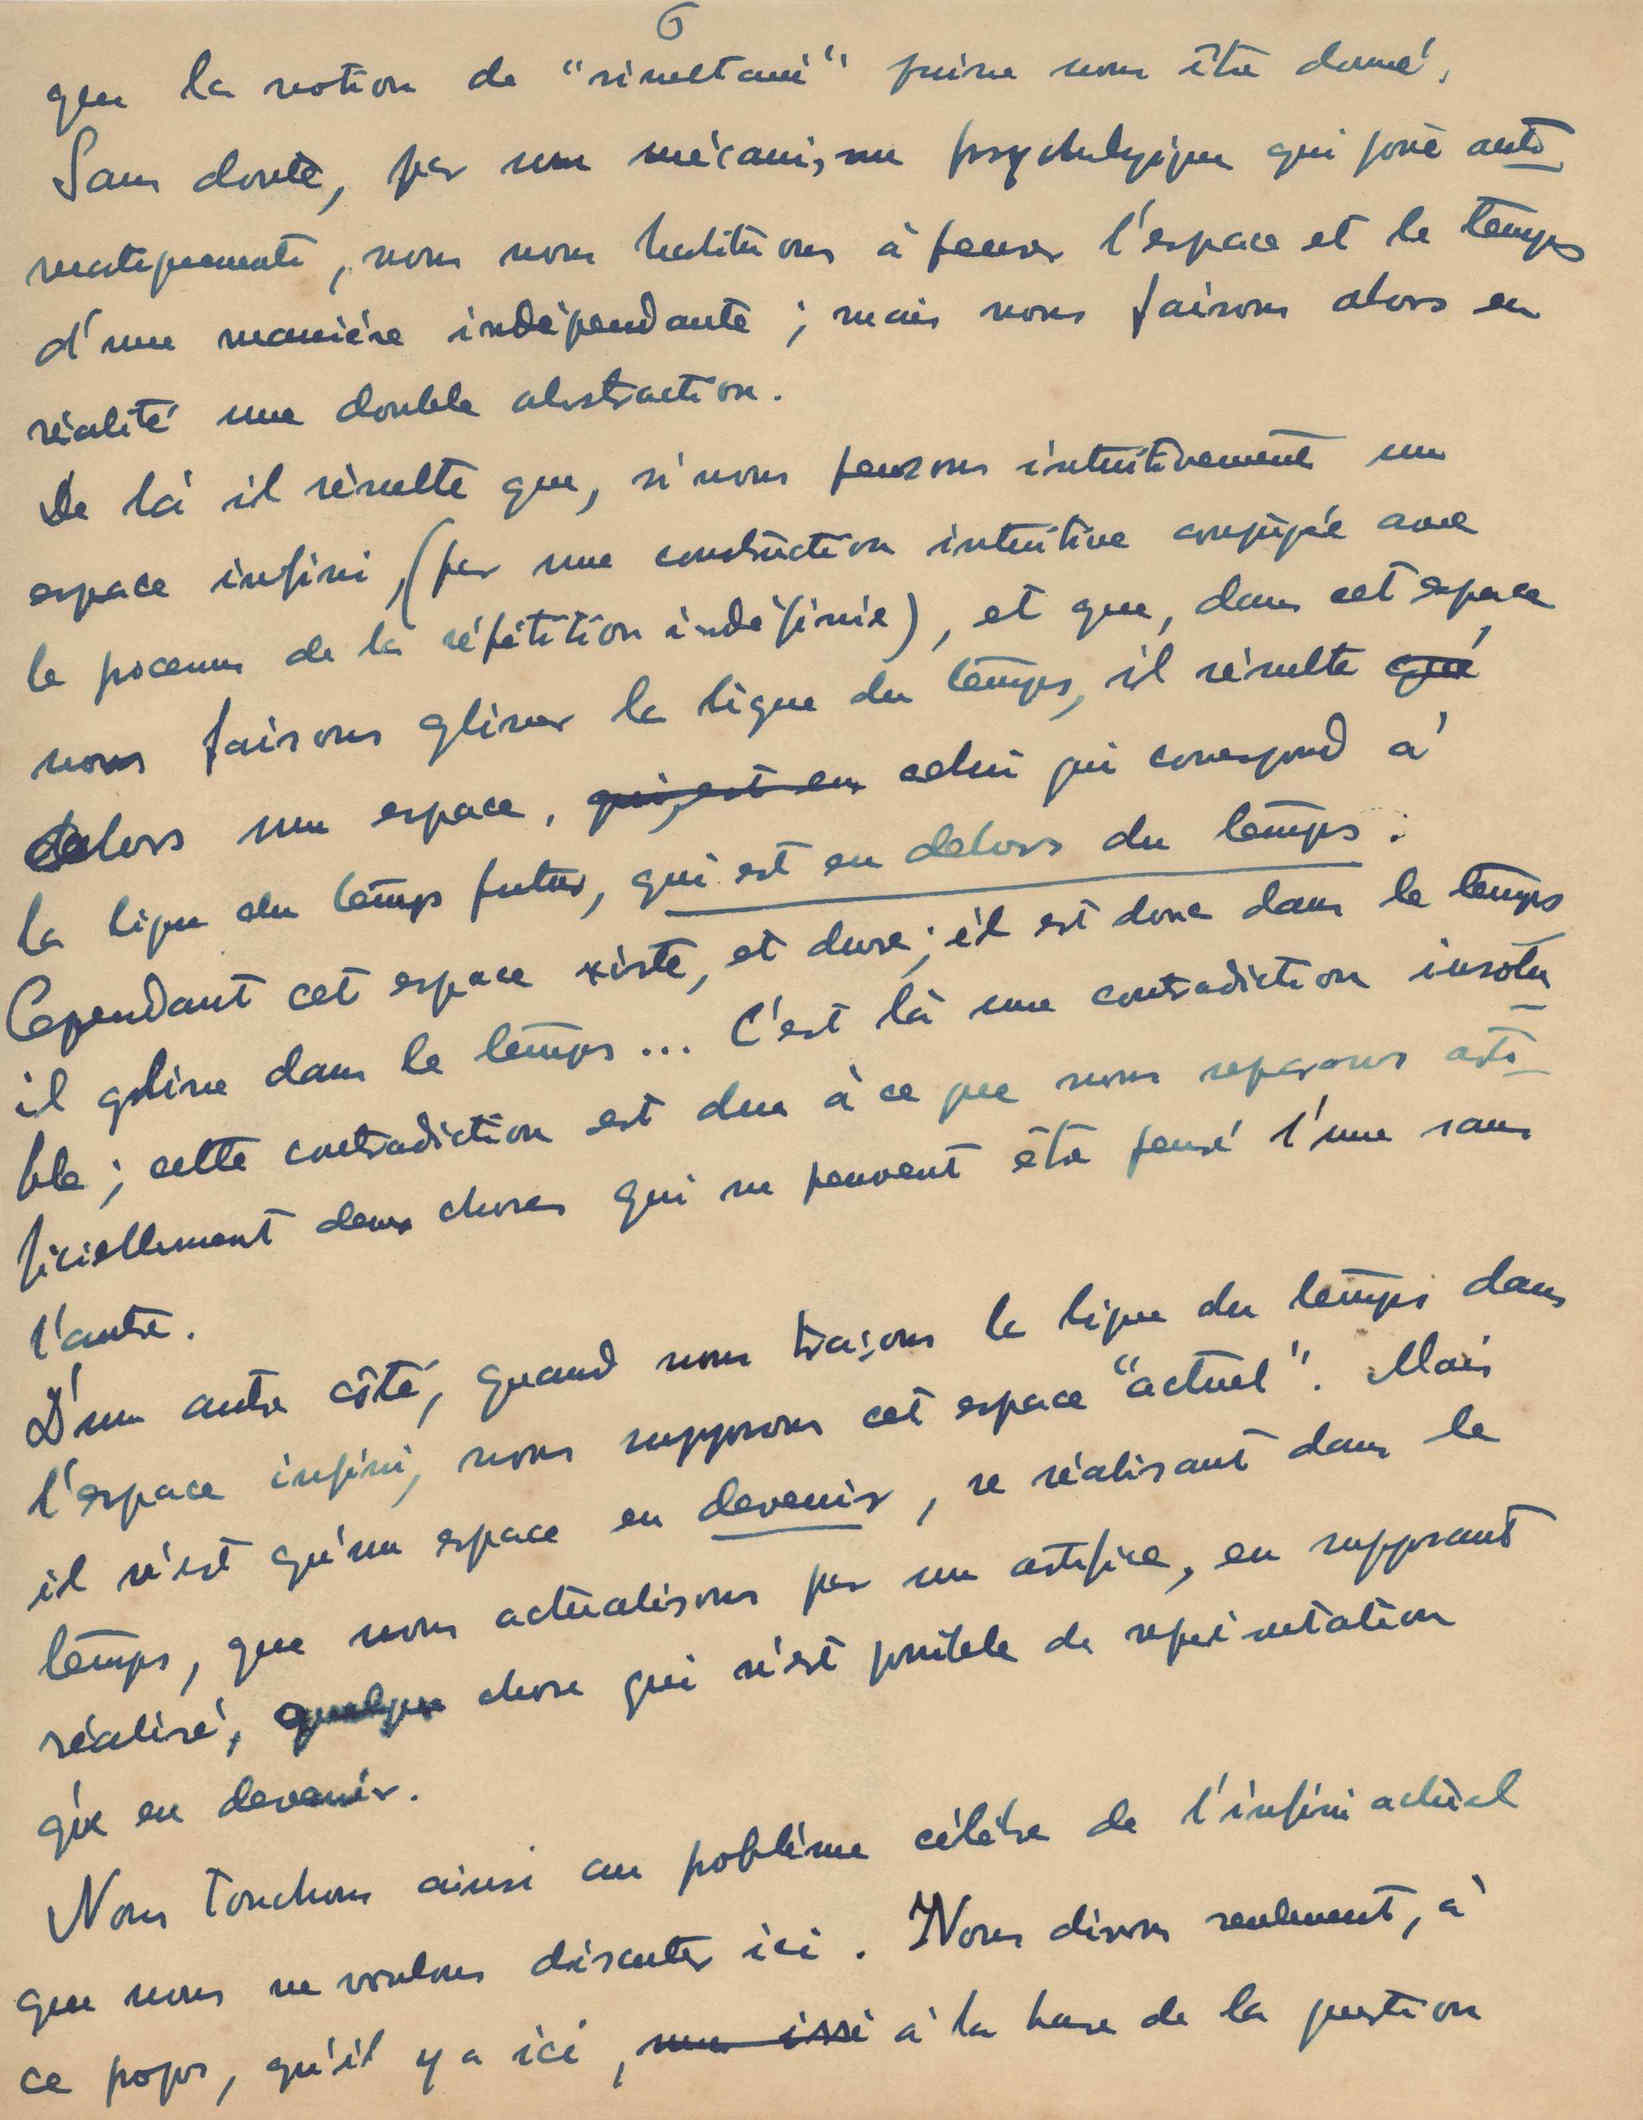 6
que la notion de "simultané" puisse nous être donné.
Sans doute, par un mécanisme psychologique qui joue auto
matiquement, nous nous habituons à penser l'espace et le temps
d'une manière indépendante ; mais nous faisons alors en
réalité une double abstraction.
De là il résulte que, si nous pensons intuitivement un
espace infini, (par une construction intuitive conjuguée avec
le processus de la répétition indéfinie), et que, dans cet espace
nous faisons glisser la ligne du temps, il résulte que
alors un espace, qui est en celui qui correspond à
la ligne du temps futur, qui est en dehors du temps.
Cependant cet espace existe, et dure ; il est donc dans le temps
il glisse dans le temps... C'est là une contradiction insolu
ble ; cette contradiction est due à ce que nous separons arti-
ficiellement deux choses qui ne peuvent être pensé l'une sans
l'autre.
D'un autre côté, quand nous traçons la ligne du temps dans
l'espace infini, nous supposons cet espace "actuel". Mais
il n'est qu'un espace en devenir, se réalisant dans le
temps, que nous actualisons par un artifice, en supposant
réalisé, quelque chose qui n'est possible de représentation
q'ue en devenir.
Nous touchons ainsi au problème célèbre de l'infini actuel
que nous ne voulons discuter ici. Nous disons seulement, à
ce propos, qu'il y a ici, à la base de la question